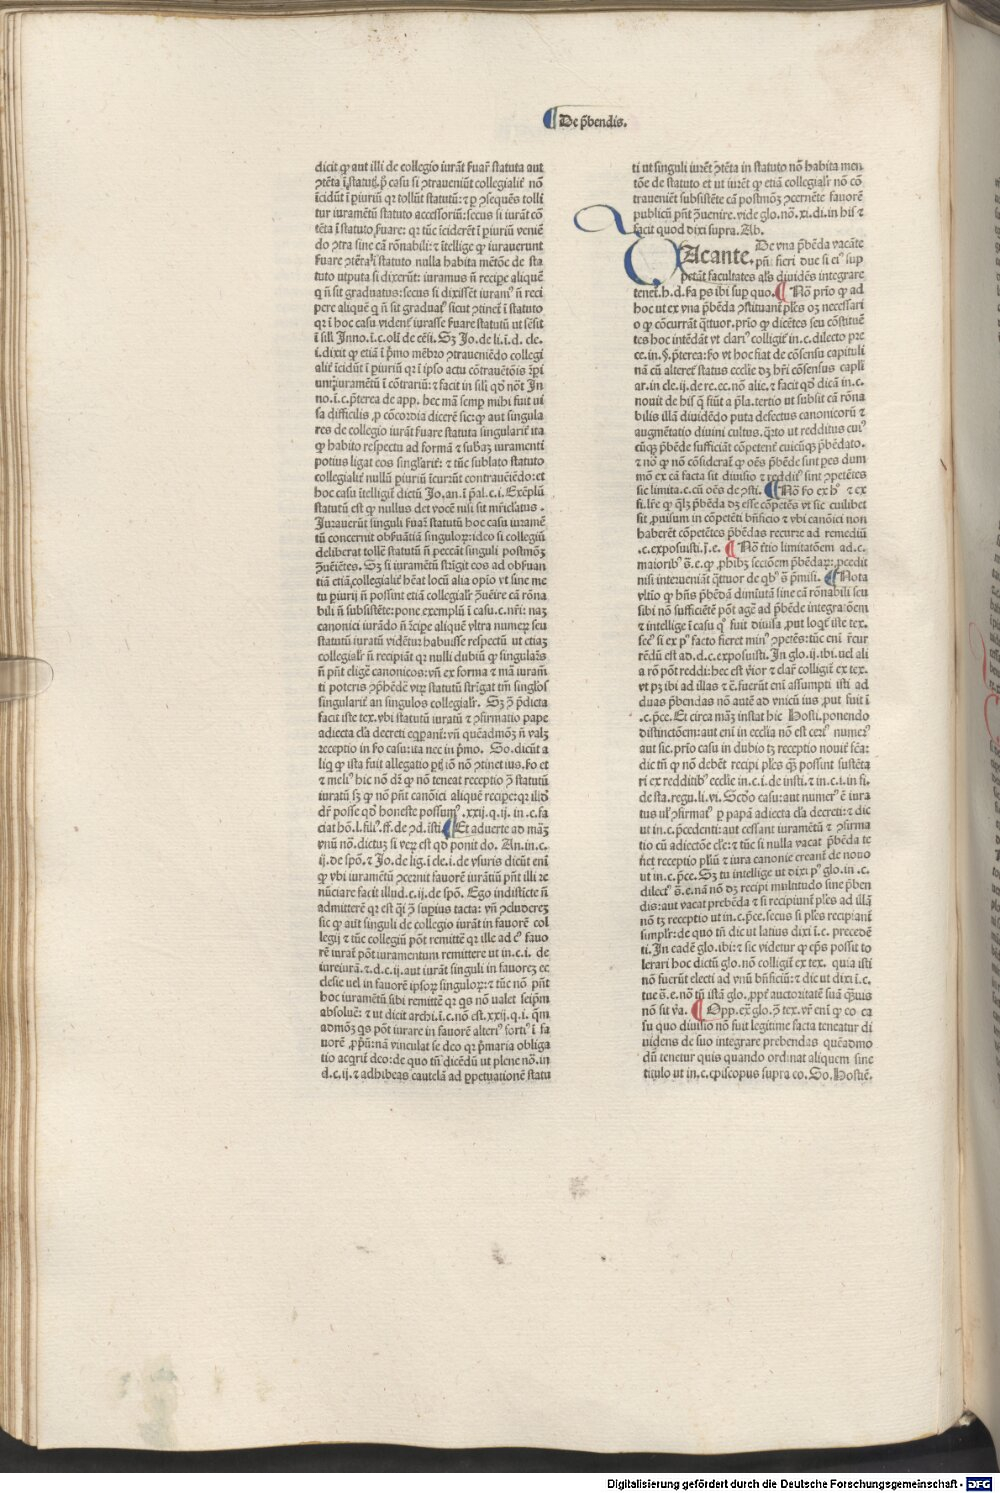 De p̄bendis.
dicit ꝙ aut illi de collegio iurāt ẜuar̄ statuta aut
ꝯtēta ī statut. p̄ casu si ꝯtraueniūt collegialit̄ nō
īcidūt ī ꝑiuriū qꝛ tollūt statutū: ⁊ ꝑ ꝯsequēs tolli
tur iuramētū statuto accessoriū: secus si iurāt cō
tēta ī statuto ẜuare: qꝛ tūc īciderēt ī ꝑiuriū veniē
do ꝯtra sine cā rōnabili: ⁊ ītellige ꝙ iurauerunt
ẜuare ꝯtēta ī statuto nulla habita mētōe de sta
tuto utputa si dixerūt: iuramus n̄ recipe aliquē
q n̄ sit graduatus: secus si dixissēt iuramꝰ n̄ reci
pere aliquē q n̄ sit graduatꝰ sicut ꝯtinet̄ ī statuto
qꝛ ī hoc casu vident̄ iurasse ẜuare statutū ut sēsit
ī sili Inno. ī.c. oli de cēsi. Sꝫ Jo. de li. ī.d. cle.
i. dixit ꝙ etiā ī p̄mo mēbro ꝯtraueniēdo collegi
alit̄ īcidūt ī ꝑiuriū qꝛ ī ipso actu cōtrauētōis
iuramētū ī cōtrariū: ⁊ facit in sili qđ nōt In
no. ī.c. p̄terea de app. hec mā semꝑ mihi fuit ui
sa difficilis, ꝓ cōcordia dicerē sic: ꝙ aut singula
res de collegio iurāt ẜuare statuta singularit̄ ita
ꝙ habito respectu ad formā ⁊ subaꝫ iuramenti
potius ligat eos singlarit̄: ⁊ tūc sublato statuto
collegialit̄ nullū ꝑiuriū īcurūt contrauēiēdo: et
hoc casu ītelligit̄ dictū Jo. an. ī p̄al. c. i. Exēplū
statutū est ꝙ nullus det vocē nisi sit
Jurauerūt singuli ẜuar̄ statutū hoc casu iuramē
tū concernit obẜuātiā singuloꝝ: ideo si collegiū
deliberat tollē statutū n̄ peccāt singuli postmoꝫ
ꝯueniētes. Sꝫ si iuramētū strīgit eos ad obẜuan
tiā etiā collegialit̄ hēat locū alia opio vt sine me
tu ꝑiurij n̄ possint etiā collegialr̄ ꝯuēire cā rōna
bili n̄ subsistēte: pone exemplū ī casu. c. nr̄i: naꝫ
canonici iurādo n̄ recipe aliquē vltra numeꝝ seu
statutū iuratū vidētur habuisse respectū ut etiaꝫ
collegialr̄ n̄ recipiāt qꝛ nulli dubiū ꝙ singulares
n̄ pn̄t eligē canonicos: vn̄ ex forma ⁊ mā iuram̄
ti poteris ꝯp̄hēdē vtꝝ statutū strīgat tm̄ singlos
singularit̄ an singulos collegialr̄. Sꝫ p̄dicta
facit iste tex. vbi statutū iuratū ⁊ ꝯfirmatio pape
adiecta cla decreti vn̄ quēadmoꝫ n̄ valꝫ
receptio in ẜo casu: ita nec in p̄mo. So. dicūt a
liq ꝙ ista fuit allegatio nō ꝯtinet ius. ẜo et
⁊ meliꝰ hic nō dr̄ ꝙ nō teneat receptio statutū
iuratū sꝫ ꝙ nō pn̄t canōici aliquē recipe: qꝛ illđ
dr̄ posse qđ honeste possumꝰ. xxij. q. ij. in. c. fa
ciat hō. l. filiꝰ. ff. de ꝯd. īsti. Et aduerte ad maꝫ
vnū nō. dictuꝫ si veꝝ est qđ ponit do. An. in. c.
ij. de spō. ⁊ Jo. de lig. ī cle. i. de vsuris dicūt eni
ꝙ vbi iuramētū ꝯcernit fauorē iurātiū pn̄t illi re
nūciare facit illud. c. ij. de spō. Ego indisticte n̄
admitterē qꝛ est suꝑius tacta: vn̄ ꝯcludereꝫ
sic ꝙ aūt singuli de collegio iurāt in fauorē col
legij ⁊ tūc collegiū pōt remittē qꝛ ille ad cꝰ fauo
rē iurat̄ pōt iuramentum remittere ut in. c. i. de
iureiurā. ⁊. d. c. ij. aut iurāt singuli in fauoreꝫ ec
clesie uel in fauorē ipsoꝝ singuloꝝ: ⁊ tūc nō pn̄t
hoc iuramētū sibi remittē qꝛ qs nō ualet seipm̄
absoluē: ⁊ ut dicit archi. ī. c. nō est. xxij. q. i. qm̄
admōꝫ qs pōt iurare in fauorē alteriꝰ fortiꝰ ī fa
uorē ꝓpriū: nā vinculat se deo qꝛ p̄maria obliga
tio acqrit̄ deo: de quo tn̄ dicēdū ut plene nō. in
d. c. ij. ⁊ adhibeas cautelā ad ꝑpetuationē statu
ti ut singuli iurēt ꝯtēta in statuto nō habita men
tōe de statuto et ut iurēt ꝙ etiā collegialr̄ nō cō
trauenēt subsistēte cā postmōꝫ ꝯcernēte fauorē
publicū pn̄t ꝯuenire. vide glo. nō. xi. di. in his ⁊
facit quod dixi supra. Ab.
VAcante. De vna p̄bēda vacāte
pn̄t fieri due si eiꝰ sup
petāt facultates als diuidēs integrare
tenet̄. h. d. ẜa ps ibi suꝑ quo. Nō prīo ꝙ ad
hoc ut ex vna p̄bēda ꝯstituant̄ ples oꝫ necessari
o ꝙ cōcurrāt q̄tuor. prīo ꝙ dicētes seu cōstituē
tes hoc intēdāt vt clariꝰ colligit̄ in. c. dilecto pre
ce. in. §. p̄terea: ẜo vt hoc fiat de cōsensu capituli
nā cū alteret̄ status ecclie dꝫ hr̄i cōsensus capli
ar. in cle. ij. de re. ec. nō alie. ⁊ facit qđ dicā in. c.
nouit de his q̄ fiūt a p̄la. tertio ut subsit cā rōna
bilis illā diuidēdo puta defectus canonicorū ⁊
augmētatio diuini cultus. q̄rto ut redditus cuiꝰ
cūq̄ p̄bēde sufficiāt cōpetent̄ cuicūq̄ p̄bēdato.
⁊ nō ꝙ nō cōsiderat̄ ꝙ oēs p̄bēde sint pes dum
mō ex cā facta sit diuisio ⁊ reddiꝰ sint ꝯpetētes
sic limita. c. cū oēs de ꝯsti. Nō ẜo ex hꝰ ⁊ ex
si. lr̄e ꝙ qlꝫ p̄bēda dꝫ esse cōpetēs vt sic cuilibet
sit ꝓuisum in cōpetēti bn̄ficio ⁊ vbi canōici non
haberēt cōpetētes p̄bēdas recurre ad remediū
.c. exposuisti. j. e. Nō t̄tio limitatōem ad. c.
maioribꝰ s̄. e. ꝙ ꝓhibꝫ sectōem p̄bēdaꝝ: ꝓcedit
nisi interueniāt q̄tuor de qbꝰ s̄. ī p̄misi. Nota
vltīo ꝙ hn̄s p̄bēdā diminutā sine cā rōnabili seu
sibi nō sufficiētē pōt agē ad p̄bēde integratōem
⁊ intellige ī casu qꝰ fuit diuisa, put loqꝰ iste tex.
secꝰ si ex pꝰ facto fieret minꝰ ꝯpetēs: tūc eni r̄cur
rēdū est ad. d. c. exposuisti. In glo. ij. ibi. uel ali
a rō pōt reddi: hec est v̄ior ⁊ clar̄ colligit̄ ex tex.
vt pꝫ ibi ad illas ⁊ c̄. fuerūt eni assumpti isti ad
duas p̄bendas nō autē ad vnicū ius, put fuit ī
.c. p̄ce. Et circa maꝫ instat hic Hosti. ponendo
distinctōem: aut eni in ecclia nō est certꝰ numerꝰ
aut sic. prīo casu in dubio tꝫ receptio nouit̄ fēa:
dic tn̄ ꝙ nō debēt recipi ples q̄ possint sustēta
ri ex redditibꝰ ecclie in. c. i. de insti. ⁊ in. c. i. in fi.
de sta. regu. li. vi. Scđo casu: aut numerꝰ ē iura
tus ul ꝯfirmatꝰ ꝑ papā adiecta cla decreti: ⁊ dic
ut in. c. p̄cedenti: aut cessant iuramētū ⁊ ꝯfirma
tio cū adiectōe cle: ⁊ tūc si nulla vacat p̄bēda te
net receptio pliū ⁊ iura canonie creant̄ de nouo
ut in. c. p̄ce. Sꝫ tu intellige ut dixi pꝰ glo. in. c.
dilectꝰ s̄. e. nā nō dꝫ recipi multitudo sine p̄ben
dis: aut vacat prebēda ⁊ si recipiunt̄ ples ad illā
nō tꝫ receptio ut in. c. p̄ce. secus si ples recipiant̄
simplr̄: de quo tn̄ dic ut latius dixi ī. c. precedē
ti. In eadē glo. ibi: ⁊ sic videtur ꝙ ep̄s possit to
lerari hoc dictū glo. nō colligit̄ ex tex. quia isti
nō fuerūt electi ad vnū bn̄ficiū: ⁊ dic ut dixi ī. c.
tue s̄. e. nō tn̄ istā glo. ꝓpt̄ auctoritatē suā q̄uis
nō sit v̄a. Opp. ex̄ glo. tex. vr̄ eni ꝙ eo ca
su quo diuisio nō fuit legitime facta teneatur di
uidens de suo integrare prebendas quēadmo
dū tenetur quis quando ordinat aliquem sine
titulo ut in. c. episcopus supra eo. So. Hostiē.
Digitalisierung gefördert durch die Deutsche Forschungsgemeinschaft - DFG